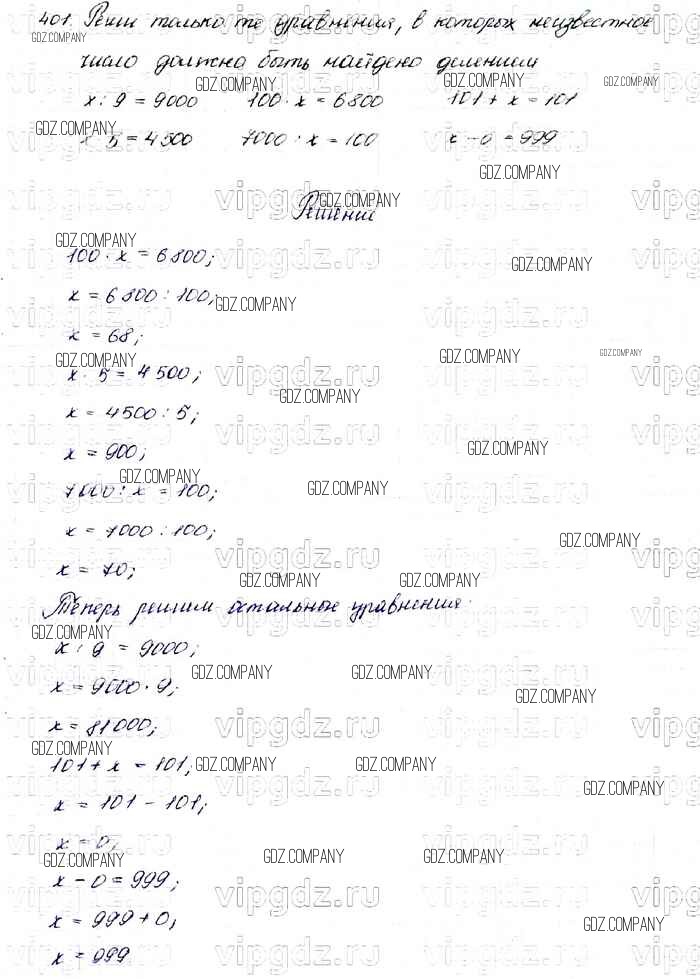 401. Реши только те уравнения, в которых неизвестное
число должно быть найдено делением
x : 9 = 9000 100 · x = 6800 101 + x = 101
x · 5 = 4500 7000 : x = 100 x - 0 = 999
Решение
100 · x = 6800;
x = 6800 : 100;
x = 68;
x · 5 = 4500;
x = 4500 : 5;
x = 900;
7000 : x = 100;
x = 7000 : 100;
x = 70;
Теперь решим остальные уравнения:
x : 9 = 9000;
x = 9000 · 9;
x = 81000;
101 + x = 101;
x = 101 - 101;
x = 0;
x - 0 = 999;
x = 999 + 0;
x = 999
GDZ.COMPANY
vipgdz.ru